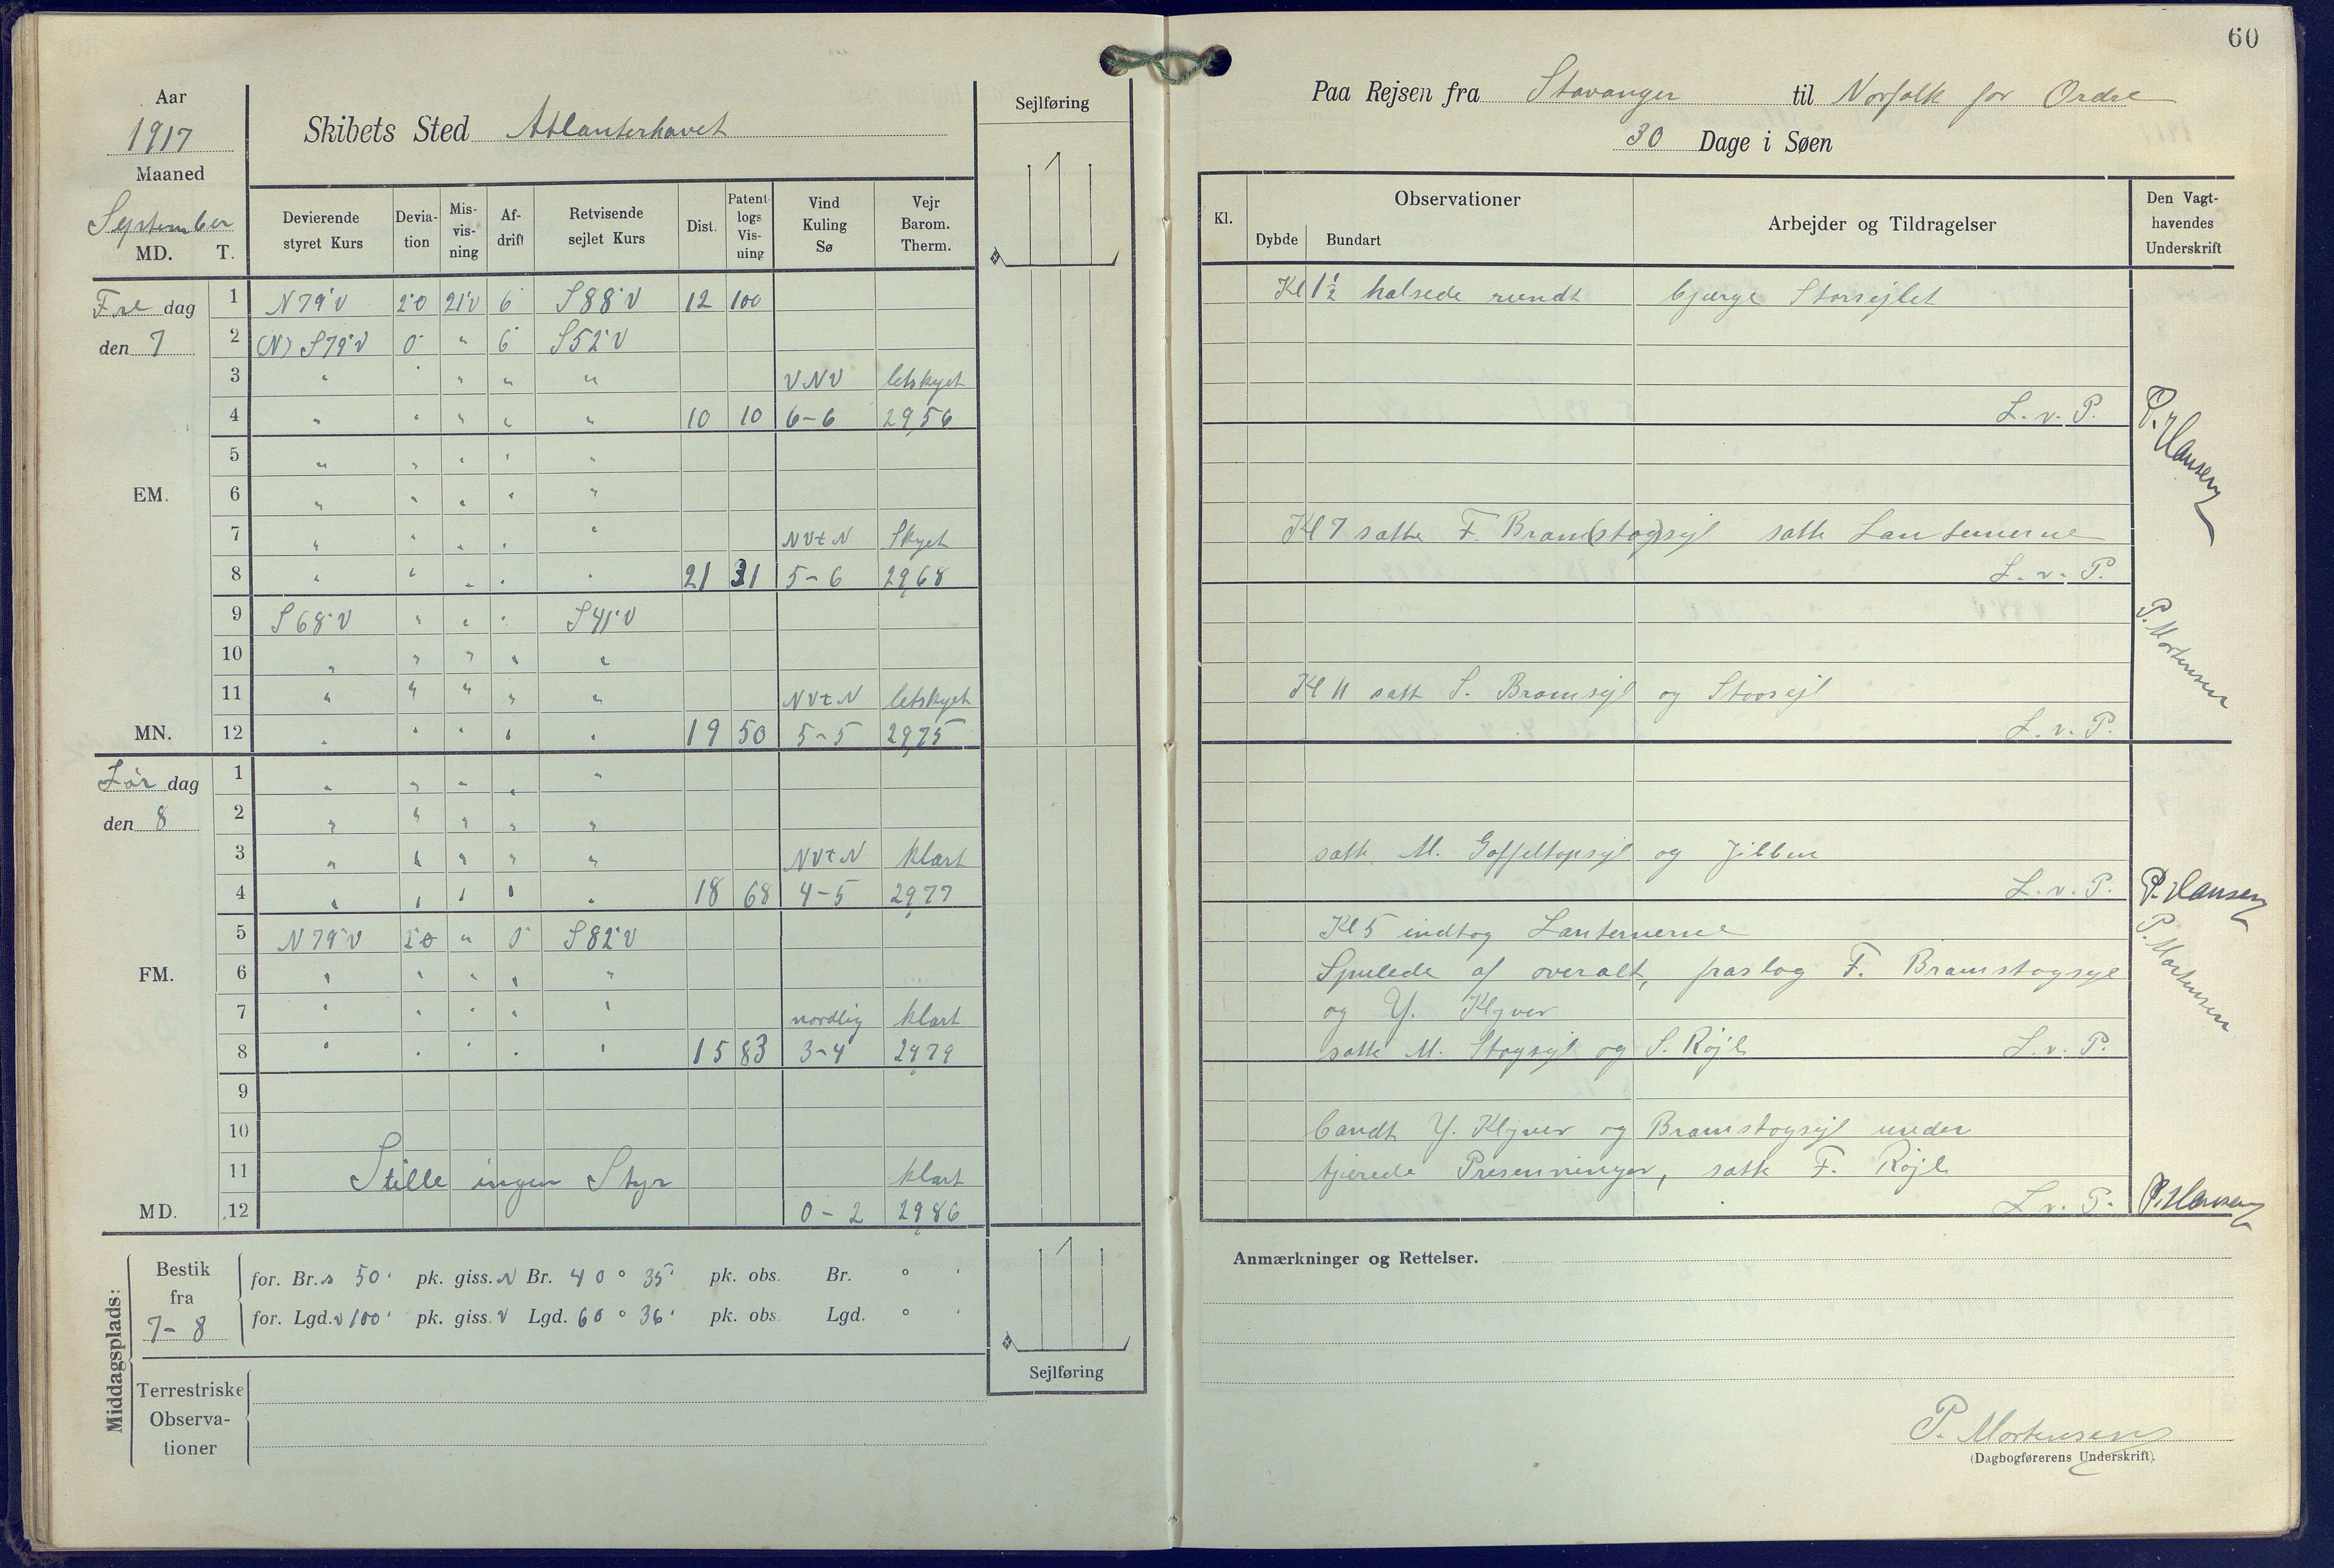 60
Aar
1917
Maaned
September
MD. T.
Skibets Sted Atlanterhavet
Sejlføring
Devierende styret Kurs
Deviation
Misvisning
Afdrift
Retvisende sejlet Kurs
Dist.
Patentlogs Visning
Vind Kuling Sø
Vejr Barom. Therm.
Fre dag
den 7
1 N79°V 2°0 21°V 6° S88°V 12 100
2 (N) S79°V 0° " 6° S52°V
3 " " " " " VNV letskyet
4 " " " " " 10 10 6-6 29,56
5 " " " " "
EM. 6 " " " " "
7 " " " " " NVtN Skyet
8 " " " " " 21 31 5-6 29,68
9 S68°V " " " S41°V
10 " " " " "
11 " " " " " NVtN letskyet
MN. 12 " " " " " 19 50 5-5 29,75
Lør dag
den 8
1 " " " " "
2 " " " " "
3 " " " " " NVtN klart
4 " " " " " 18 68 4-5 29,77
5 N79°V 2°0 " 0° S82°V
FM. 6 " " " " "
7 " " " " " nordlig klart
8 " " " " " 15 83 3-4 29,79
9
10
11 Stille ingen Styr klart
MD. 12 0-2 29,86
Middagsplads:
Bestik
fra
7-8
for. Br. s 50' pk. giss. N Br. 40° 35' pk. obs. Br. ° '
for. Lgd. v 100' pk. giss. V Lgd. 60° 36' pk. obs. Lgd. ° '
Terrestriske
Observa-
tioner
Sejlføring
Paa Rejsen fra Stavanger til Norfolk for Ordre
30 Dage i Søen
Kl.
Observationer
Dybde Bundart
Arbejder og Tildragelser
Den Vagt-
havendes
Underskrift
Kl 1½ halsede rundt bjærge Storsejlet
L. v. P.
P. Hansen
Kl 7 satte F. Bram(stag)sejl satte Lanternerne
L. v. P.
P. Mortensen
Kl 11 satte S. Bramsejl og Storsejl
L. v. P.
satte M. Gaffeltopsejl og Jibben
L. v. P. P. Hansen
Kl 5 indtog Lanternerne
Spulede af overalt, fraslog F. Bramstagsejl
og Y. Klyver
satte M. Stagsejl og S. Røjl L. v. P.
P. Mortensen
bandt Y. Klyver og Bramstagsejl under
tjærede Presenninger, satte F. Røjl
L. v. P. P. Hansen
Anmærkninger og Rettelser.
P. Mortensen
(Dagbogførerens Underskrift).